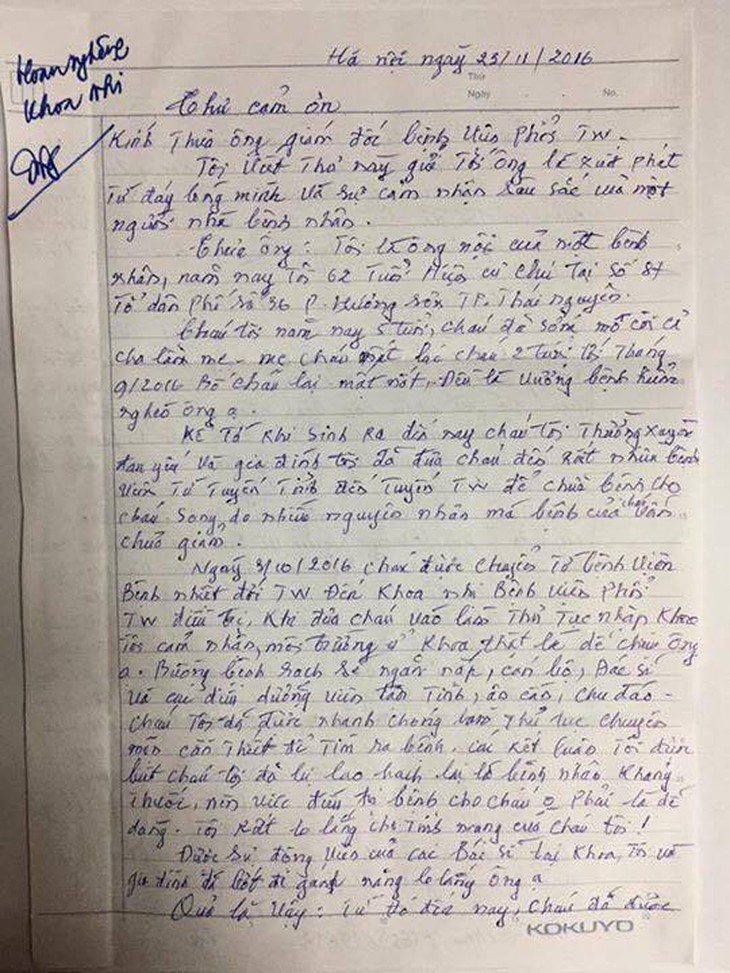 Hoan nghênh
Khoa nhi
Hà nội ngày 23/11/2016
Thứ
Ngày . . No.
Thư cảm ơn
Kính Thưa ông giám đốc bệnh viện phổi TW.
Tôi viết Thư này gửi Tới ông là xuất phát
Từ đáy lòng mình và sự cảm nhận sâu sắc của một
người nhà bệnh nhân.
Thưa ông: Tôi là ông nội của một bệnh
nhân, năm nay Tôi 62 Tuổi Hiện cư chú Tại số 87
Tổ dân phố số 36 P. Hương sơn TP. Thái nguyên.
Cháu tôi năm nay 5 tuổi, cháu đã sớm mồ côi cả
cha lẫn mẹ - mẹ cháu mất lúc cháu 2 tuổi tới Tháng
9/2016 Bố cháu lại mất nốt, Đều là vướng bệnh hiểm
nghèo ông ạ.
Kể Từ khi sinh ra đến nay cháu tôi Thường xuyên
đau yếu và gia đình tôi đã đưa cháu đến rất nhiều bệnh
viện Từ Tuyến Tỉnh đến Tuyến TW để chữa bệnh cho
cháu song, do nhiều nguyên nhân mà bệnh của cháu vẫn
chưa giảm.
Ngày 3/10/2016 cháu được chuyển Từ bệnh viện
Bệnh nhiệt đới TW Đến Khoa nhi Bệnh viện Phổi
TW điều trị, Khi đưa cháu vào làm Thủ Tục nhập Khoa
Tôi cảm nhận, môi trường ở Khoa thật là dễ chịu ông
ạ. Buồng bệnh sạch sẽ ngăn nắp, cán bộ, Bác sĩ
và các điều dưỡng viên tận Tình, ân cần, chu đáo -
cháu Tôi đã được nhanh chóng làm Thủ tục chuyên
môn cần Thiết để Tìm ra bệnh. các kết luận Tôi được
biết cháu tôi đã bị lao hạch lại là bệnh nhân Kháng
Thuốc, nên việc điều trị bệnh cho cháu o phải là dễ
dàng. Tôi Rất lo lắng cho Tính mạng của cháu tôi!
Được sự động viên của các Bác sĩ tại Khoa, Tôi và
gia đình đã bớt đi gánh nặng lo lắng ông ạ
Quả là vậy: Từ đó đến nay, cháu đã được
KOKUYO